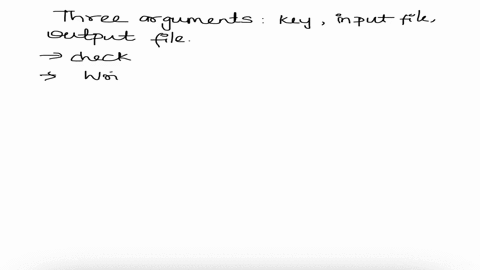 Three arguments: key, input file,
output file.
→ check
→ Wri